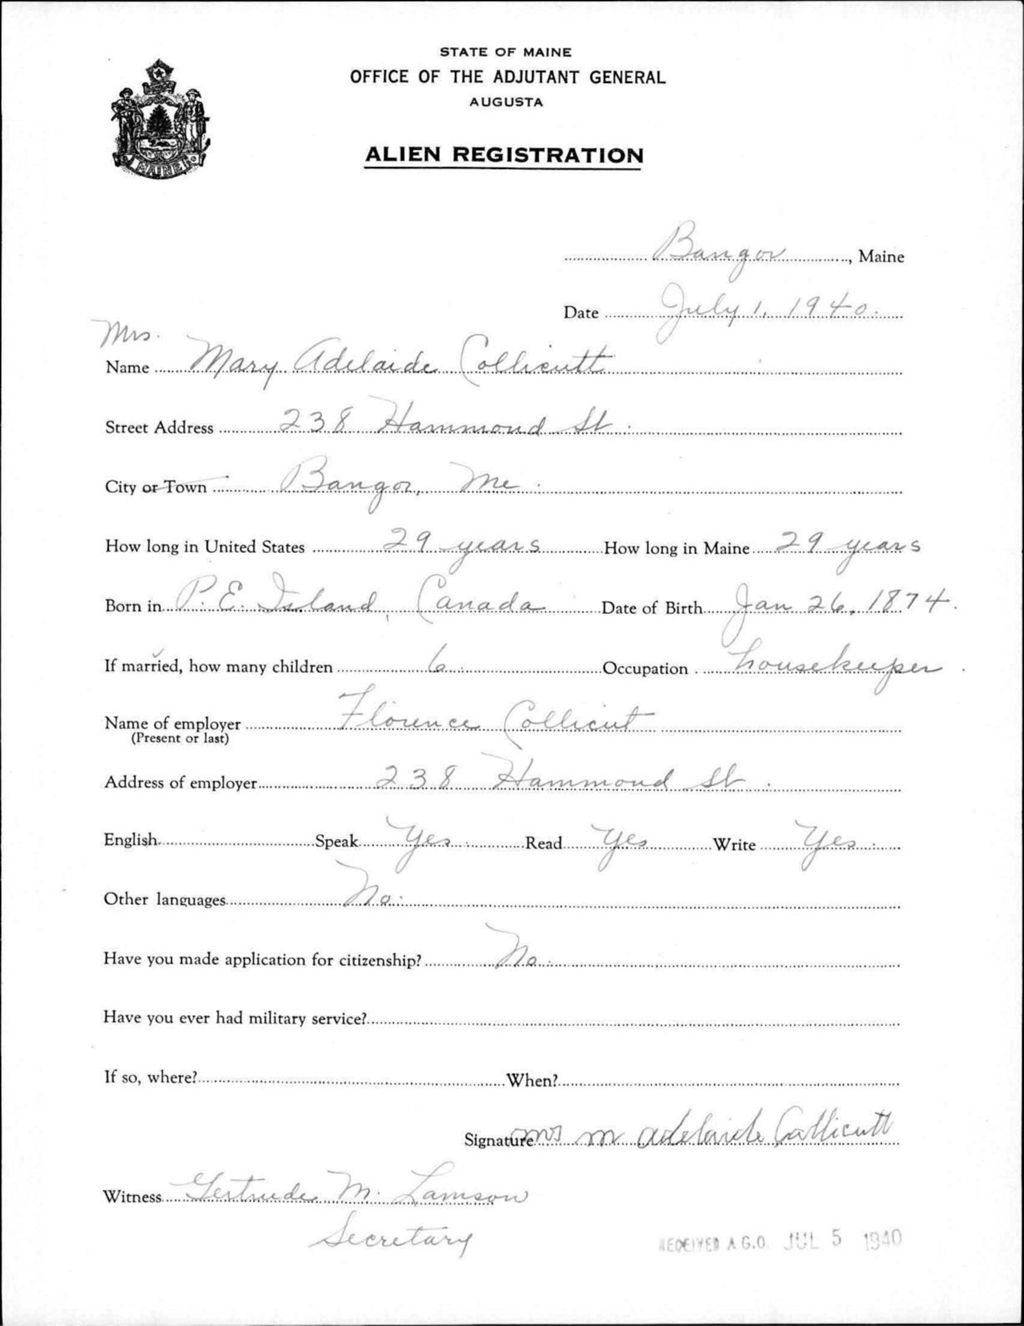 STATE OF MAINE
OFFICE OF THE ADJUTANT GENERAL
AUGUSTA
ALIEN REGISTRATION
MAINE
Bangor, Maine
Date July 1, 1940.
Mrs.
Name Mary Adelaide Collicutt
Street Address 238 Hammond St.
City or Town Bangor, Me.
How long in United States 29 years How long in Maine 29 years
Born in P. E. Island, Canada Date of Birth Jan 26, 1874.
If married, how many children 6. Occupation housekeeper.
Name of employer Florence Collicut
(Present or last)
Address of employer 238 Hammond St.
English Speak Yes. Read Yes Write Yes.
Other languages No.
Have you made application for citizenship? No.
Have you ever had military service?
If so, where? When?
Signature Mrs M Adelaide Collicutt
Witness Gertrude M. Lamson
Secretary
RECEIVED A.G.O. JUL 5 1940